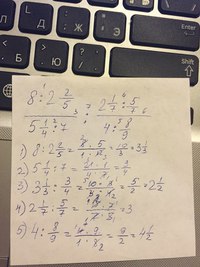 Д Ж Э
Ь Б Ю Shift
8 : 2 2/5 : 2 1/7 : 5/7
5 1/4 : 7 4 : 8/9
1) 8 : 2 2/5 = 8 · 5 / 1 · 12 = 10/3 = 3 1/3
2) 5 1/4 : 7 = 21 · 1 / 4 · 7 = 3/4
3) 3 1/3 : 3/4 = 10 · 3 / 3 · 4 = 5/2 = 2 1/2
4) 2 1/7 : 5/7 = 15 · 7 / 7 · 5 = 3
5) 4 : 8/9 = 4 · 9 / 1 · 8 = 9/2 = 4 1/2